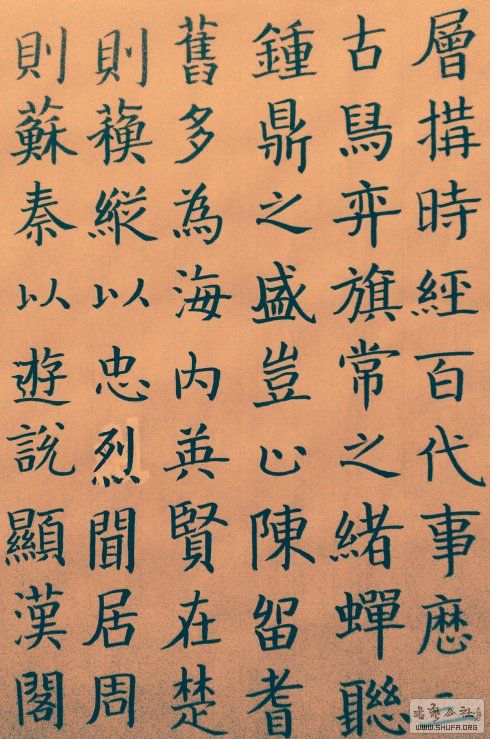 層搆時經百代事歷
古舄弈旗常之緒蟬聯
鍾鼎之盛豈止陳留耆
舊多為海內英賢在楚
則蘓縱以忠烈聞居周
則蘇秦以遊說顯漢閣
书法公社
WWW.SHUFA.ORG